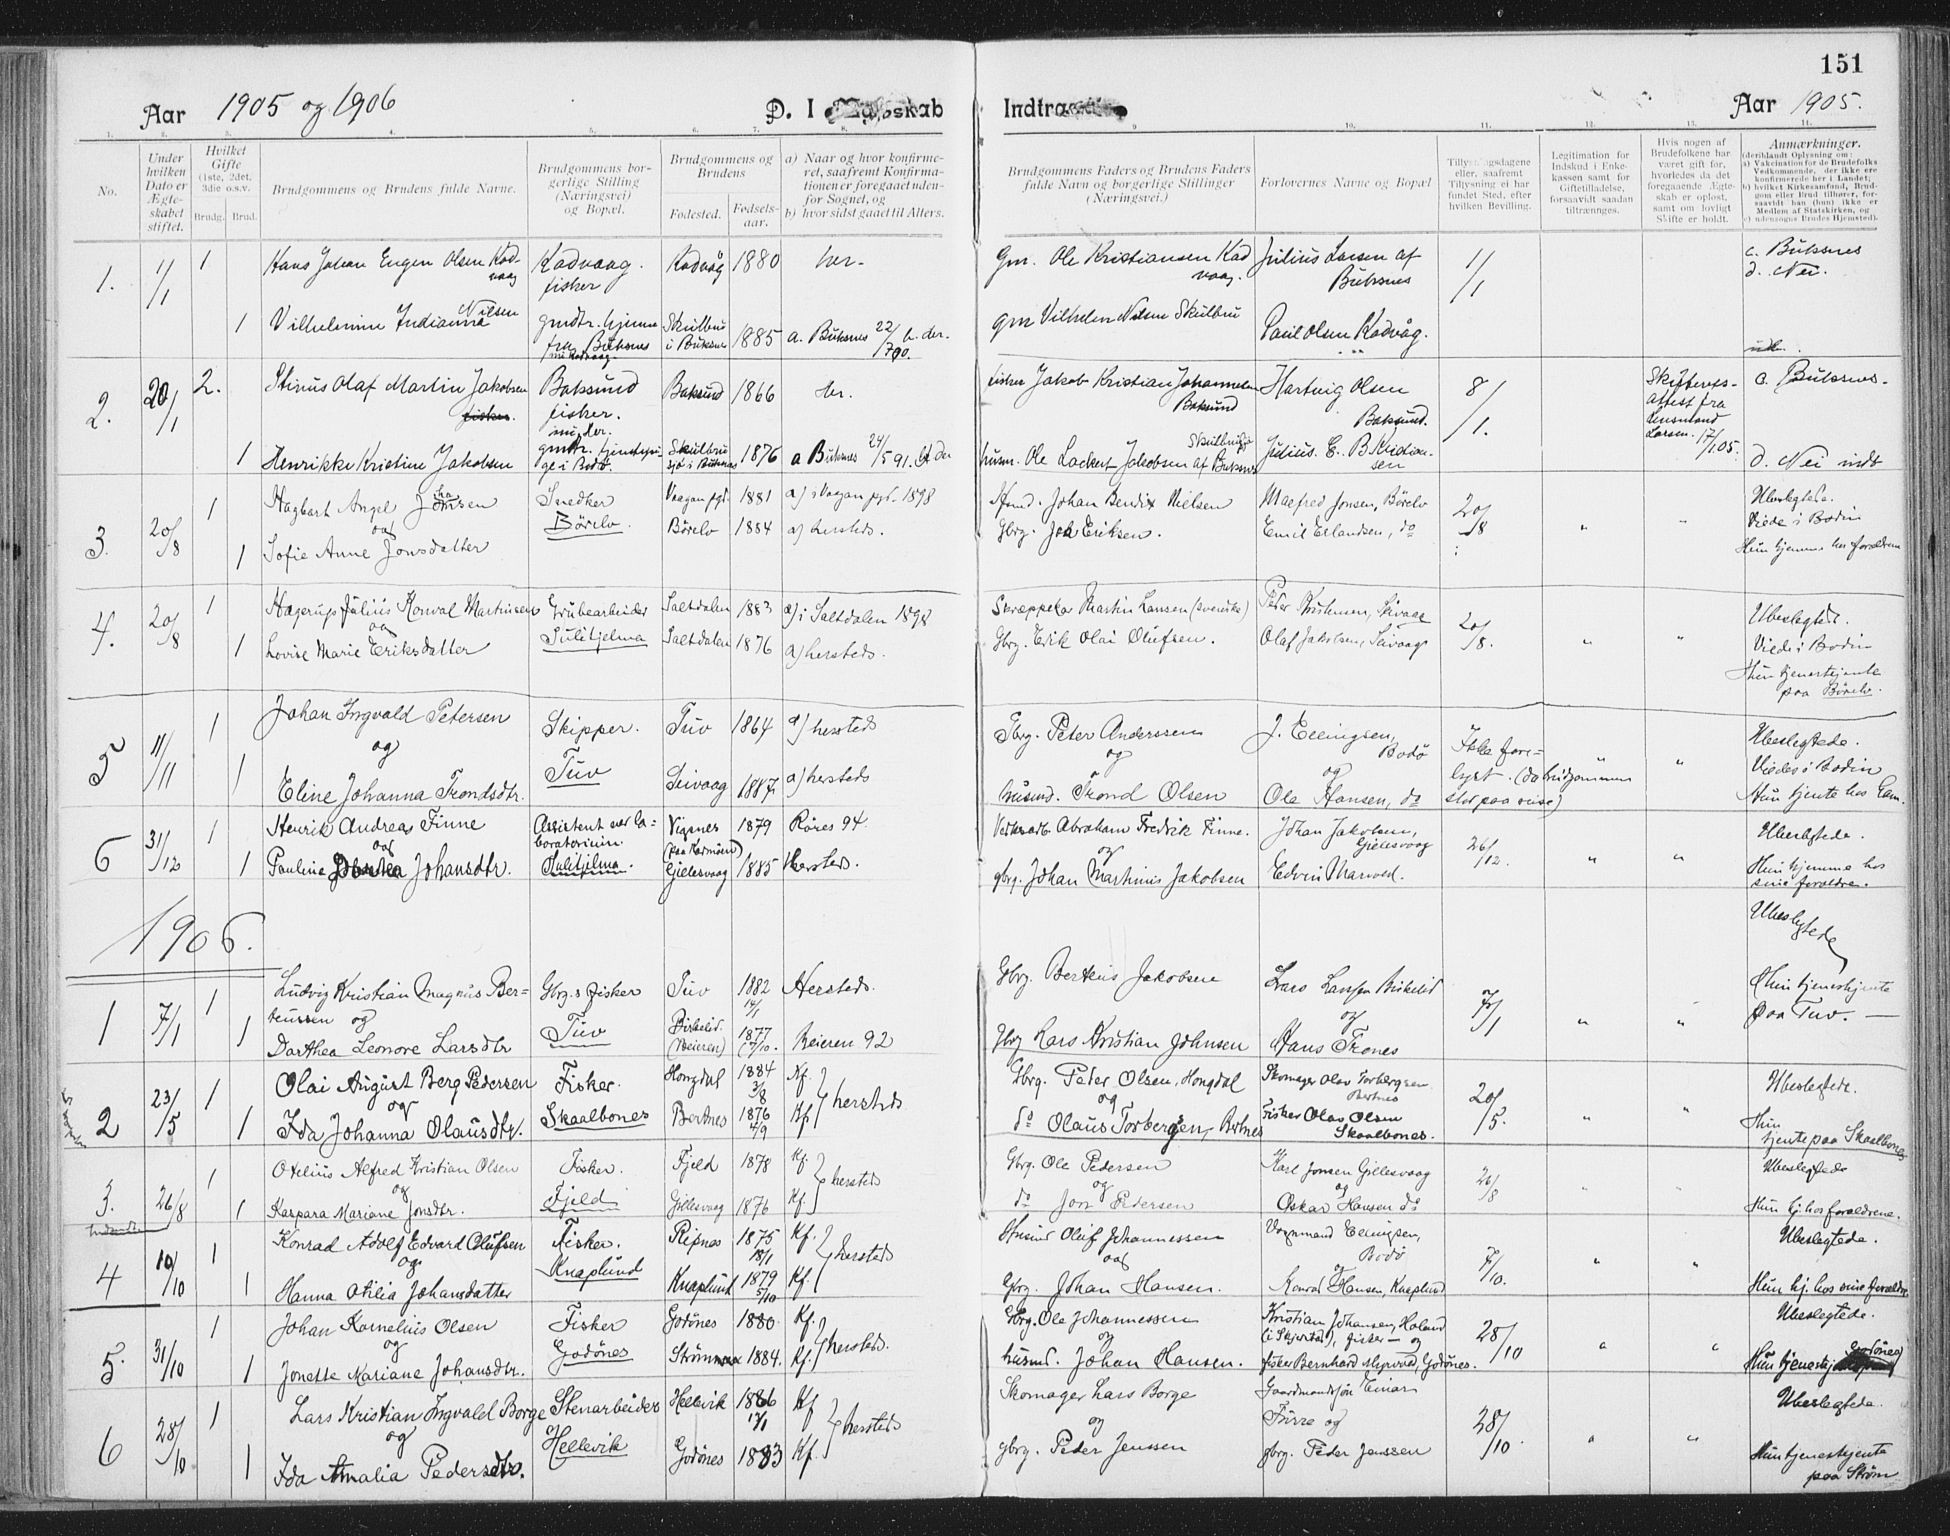 151
Aar 1905 og 1906
D. I
skab
Indtra
Aar 1905.
1. 2. 3. 4. 5. 6. 7. 8. 9. 10. 11. 12. 13. 14.
No.
Under hvilken Dato er Ægteskabet stiftet.
Hvilket Gifte (1ste, 2det, 3die o.s.v.
Brudg. Brud.
Brudgommens og Brudens fulde Navne.
Brudgommens borgerlige Stilling (Næringsvei) og Bopæl.
Brudgommens og Brudens
Fødested. Fødselsaar.
a) Naar og hvor konfirmeret, saafremt Konfirmationen er foregaaet udenfor Sognet, og
b) hvor sidst gaaet til Alters.
Brudgommens Faders og Brudens Faders fulde Navn og borgerlige Stillinger (Næringsvei.)
Forlovernes Navne og Bopæl
eller, saafremt Tillysning ei har fundet Sted, efter hvilken Bevilling.
Legitimation for Indskud i Enkekassen samt for Giftetilladelse, forsaavidt saadan tiltrænges.
Hvis nogen af Brudefolkene har været gift før, hvorledes da det foregaaende Ægteskab er opløst, samt om lovligt Skifte er holdt.
Anmærkninger.
(deriblandt Oplysning om:
a) Vakcination for de Brudefolks Vedkommende, der ikke ere konfirmerede her i Landet;
b) hvilket Kirkesamfund, Brudgom eller Brud tilhører, forsaavidt han (hun) ikke er Medlem af Statskirken, og
c) udensogns Brudes Hjemsted).
1. 1/1 1 Hans Johan Eugen Olsen Kadvaag Kadvaag. fisker Kadvåg 1880 her. gm. Ole Kristiansen Kadvaag. Julius Larsen af Buksnes 1/1 c. Buksnes d. Nei.
1 Vilhelmine Indianna Nilsen gmdtr. hjemme fra Buksnes Skulbru i Buksnes 1885 a. Buksnes 22/7 00. b. der. gm Vilhelm Nilsen Skulbru Paul Olsen Kadvåg.
2. 20/1 2. Stinus Olaf Martin Jakobsen Baksund fisker. Baksund 1866 her. fisker Jakob Kristian Johannesen Baksund Hartvig Olsen Baksund. 8/1. Skifteretsattest fra lensmand Larsen. 17/1 05. c. Buksnes.
1 Henrikke Kristine Jakobsen 1876 a Buksnes 24/5 91. husm. Ole Lockert Jakobsen af Buksnes Julius E. B Kristiansen d. Nei indt
3. 20/8 1 Hagbart Angel Johnsen Snedker Vaagan pgd. 1881 a) i Vaagan pgl. 1898 Johan Bendix Nielsen Magfred Jonsen, Børelv 20/8 " " Ubeslegtede.
og Børelv. Viede i Bodin
1 Sofie Anne Jonsdatter Børelv 1884 a) hersteds. Gbrg. Joh Eriksen. Emil Erlandsen, do Hun hjemme hos forældrene
4. 20/8 1 Hagerup Julius Konval Martinsen Grubearbeider Saltdalen 1883 a) i Saltdalen 1898 Skræppekar Martin Larsen (svenske) Peder Kristensen, Seivaag 20/8. " " Ubeslegtede.
og Sulitjelma Viede i Bodin
1 Lovise Marie Eriksdatter Saltdalen 1876 a) hersteds. Gbrg. Erik Olai Olufsen. Olaf Jakobsen, Seivaag Hun tjenerstjente paa Børelv.
5 11/11 1 Johan Ingvald Petersen Skipper. Tuv 1864 a) hersteds Gbrg. Peter Anderssen J. Ellingsen, Bodø Ikke forelyst. (da brudgommen stod paa reise) " " Ubeslegtede.
og Tuv og og Viede i Bodin
1 Eline Johanna Trondsdtr. Seivaag 1887 a) hersteds husmd. Trond Olsen Ole Hansen, do Hun tjente hos
6 31/12 1 Henrik Andreas Finne Assistent ved laboratorium. Vignes (paa Karmøen) 1879 Røros 94. Abraham Fredrik Finne. Johan Jakobsen, Gjelesvaag 26/12. " " Ubeslegtede.
og Sulitjelma. og
1 Pauline Johansdtr. Gjelesvaag 1885 Hersteds. gbrg. Johan Martinus Jakobsen Edvin Marvold. Hun hjemme hos sine forældre.
1906.
Ubeslegtede
1 7/1 1 Ludvig Kristian Magnus Berteussen og Gbrg. & fisker Tuv 1882 14/1 Hersteds. Gbrg. Berteus Jakobsen Lars Larsen Birkelid 7/1 " " Hun tjenerstjente
1 Darthea Leonore Larsdtr Tuv Birkelid (Beieren) 1877 7/10. Beieren 92 Gbrg Lars Kristian Johnsen og Hans Trones paa Tuv.
2 23/5 1 Olai August Berg Pedersen Fisker. Hongdal 1884 3/8 Kf. hersteds Gbrg. Peder Olsen, Hongdal Skomager Olav Torbergsen Bertnes 20/5. " " Ubeslegtede.
og Skaalbones og Hun
1 Ida Johanna Olausdtr. Bertnes 1876 4/9 Kf. do Olaus Torbergsen, Bertnes Fisker Olas Olsen Skaalbones. tjente paa Skaalbones
3. 26/8 1 Otelius Alfred Kristian Olsen Fisker. Fjeld 1878 Kf. hersteds Gbrg. Ole Pedersen Karl Jonsen Gillesvaag 26/8 " " Ubeslegtede
og Fjeld og og
1 Kaspara Mariane Jonsdtr. Gillesvaag 1876 Kf. do Jon Pedersen Oskar Hansen do Hun hj. hos forældrene.
4 10/10 1 Konrad Adolf Edvard Olufsen Fisker. Ripnes 1875 18/1 Kf. hersteds Husmd Oluf Johannessen Vognmand Ellingsen, Bodø 7/10. " " Ubeslegtede.
og Knaplund og og
1 Hanna Otilia Johansdatter Knaplund 1879 5/10 Kf. Gbrg. Johan Hansen. Konrad Hansen, Knaplund Hun hj. hos sine forældre
5. 31/10 1 Johan Kornelius Olsen Fisker Godønes 1880. Kf. hersteds. Gbrg. Ole Johannessen Kristian Johansen, Holand (i Skjerstad), fisker - og 28/10 " " Ubeslegtede.
og Godønes og
1 Jonette Mariane Johansdtr. Strøm 1884. Kf. husmd. Johan Hansen. fisker Bernhard Myrvold, Godønes. Hun Godønes
6 28/10 1 Lars Kristian Ingvald Borge Stenarbeider Hellevik 1886 17/1 Kf hersteds Skomager Lars Borge Gaardmandssøn Einar Furre og 28/10. " " Ubeslegtede.
og Hellevik og
1 Ida Amalia Pedersdtr. Godønes 1883 Kf. gbrg. Peder Jenssen gbrg. Peder Jenssen Hun tjenerstjente paa Strøm